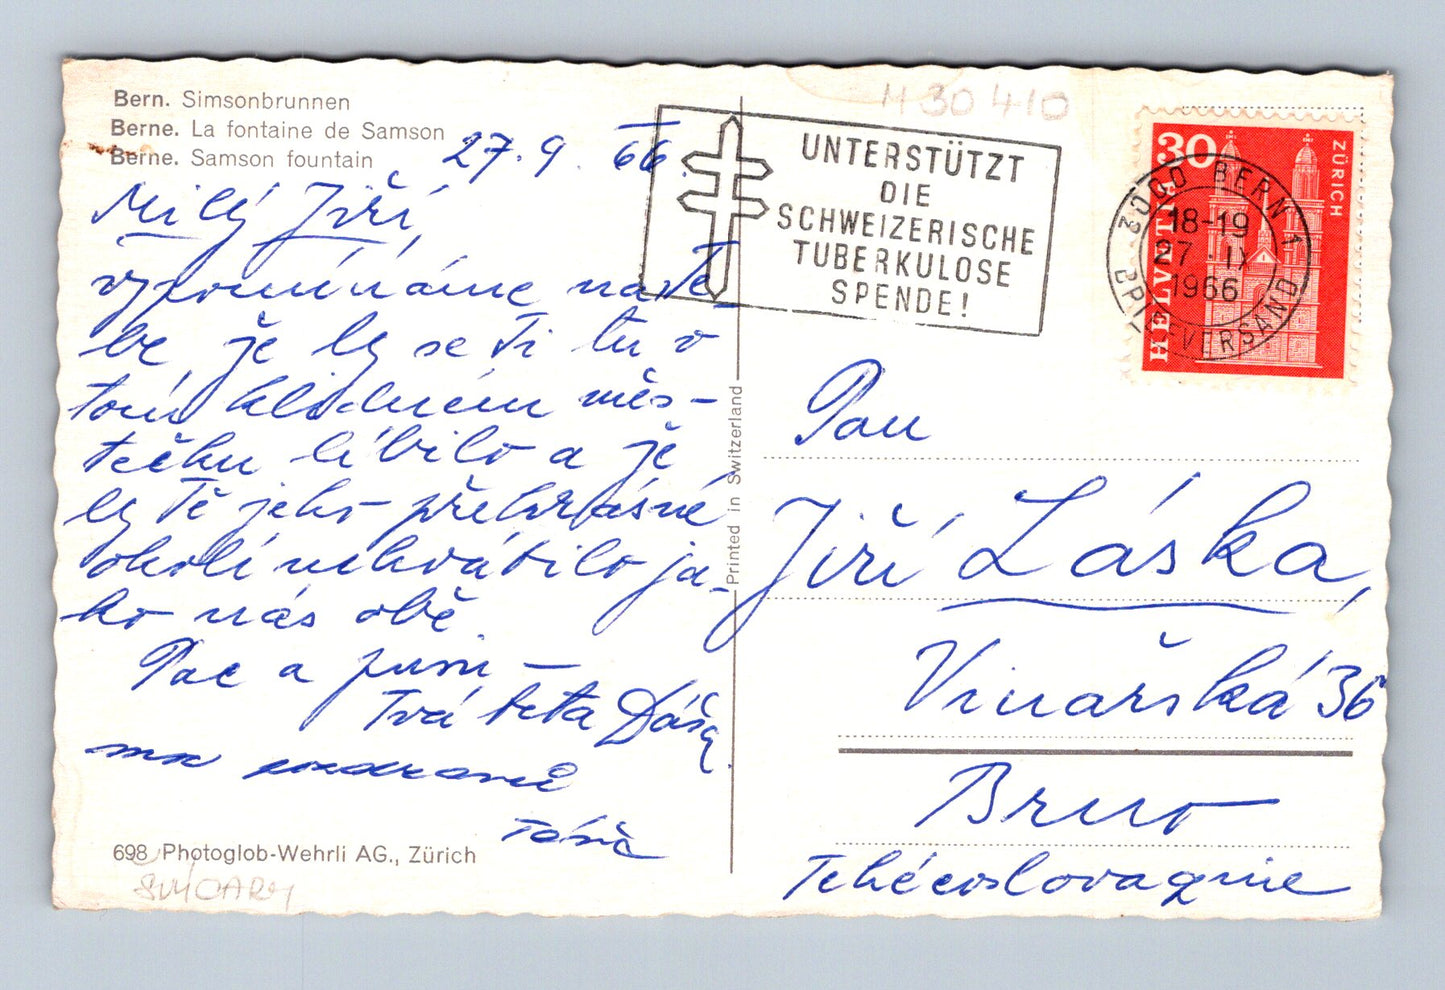 Bern. Simsonbrunnen
Berne. La fontaine de Samson
Berne. Samson fountain
27. 9. 66.
Milý Jiří,
vzpomínáme na Te-
be, že by se Ti tu v
tom klidném měs-
tečku líbilo a že
by Tě jeho překrásné
okolí uchvátilo ja-
ko nás obě.
Pac a pusu –
Tvá teta Dáša
698 Photoglob-Wehrli AG., Zürich
SVÝCARY
Printed in Switzerland
430410
UNTERSTÜTZT
DIE
SCHWEIZERISCHE
TUBERKULOSE
SPENDE!
3000 BERN 1
18-19
27.IX
1966
BRIEFVERSAND
30
HELVETIA
ZÜRICH
Pan
Jiří Láska,
Vinařská 36
Brno
Tchécoslovaquie